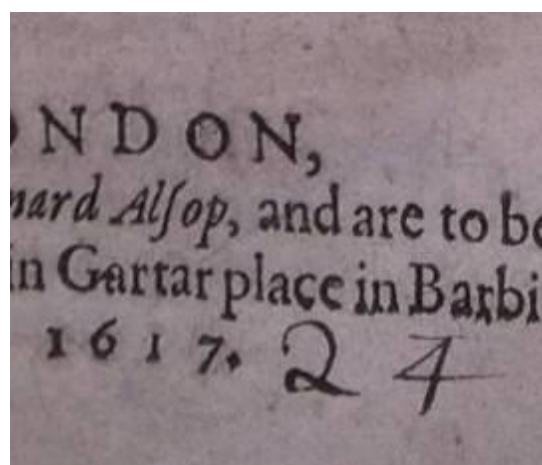 ONDON,
nard Alſop, and are to be
in Gartar place in Barbi
1617. 24